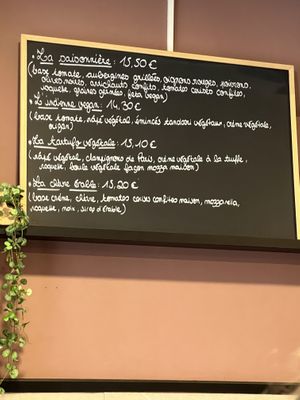 • La saisonnière : 15,50 €
(base tomate, aubergines grillées, oignons rouges, poivrons,
olives noires, artichauts confits, tomates cerises confites,
roquette, graines germées, feta vegan)
• L'indienne vegan : 14,30 €
(base tomate, râpé végétal, émincés tandoori végétaux, crème végétale,
origan)
• La tartufo végétale : 15,10 €
(râpé végétal, champignons de Paris, crème végétale à la truffe,
roquette, boule végétale façon mozza maison)
• La chèvre érable : 15,20 €
(base crème, chèvre, tomates cerises confites maison, mozzarela,
roquette, noix, sirop d'érable)